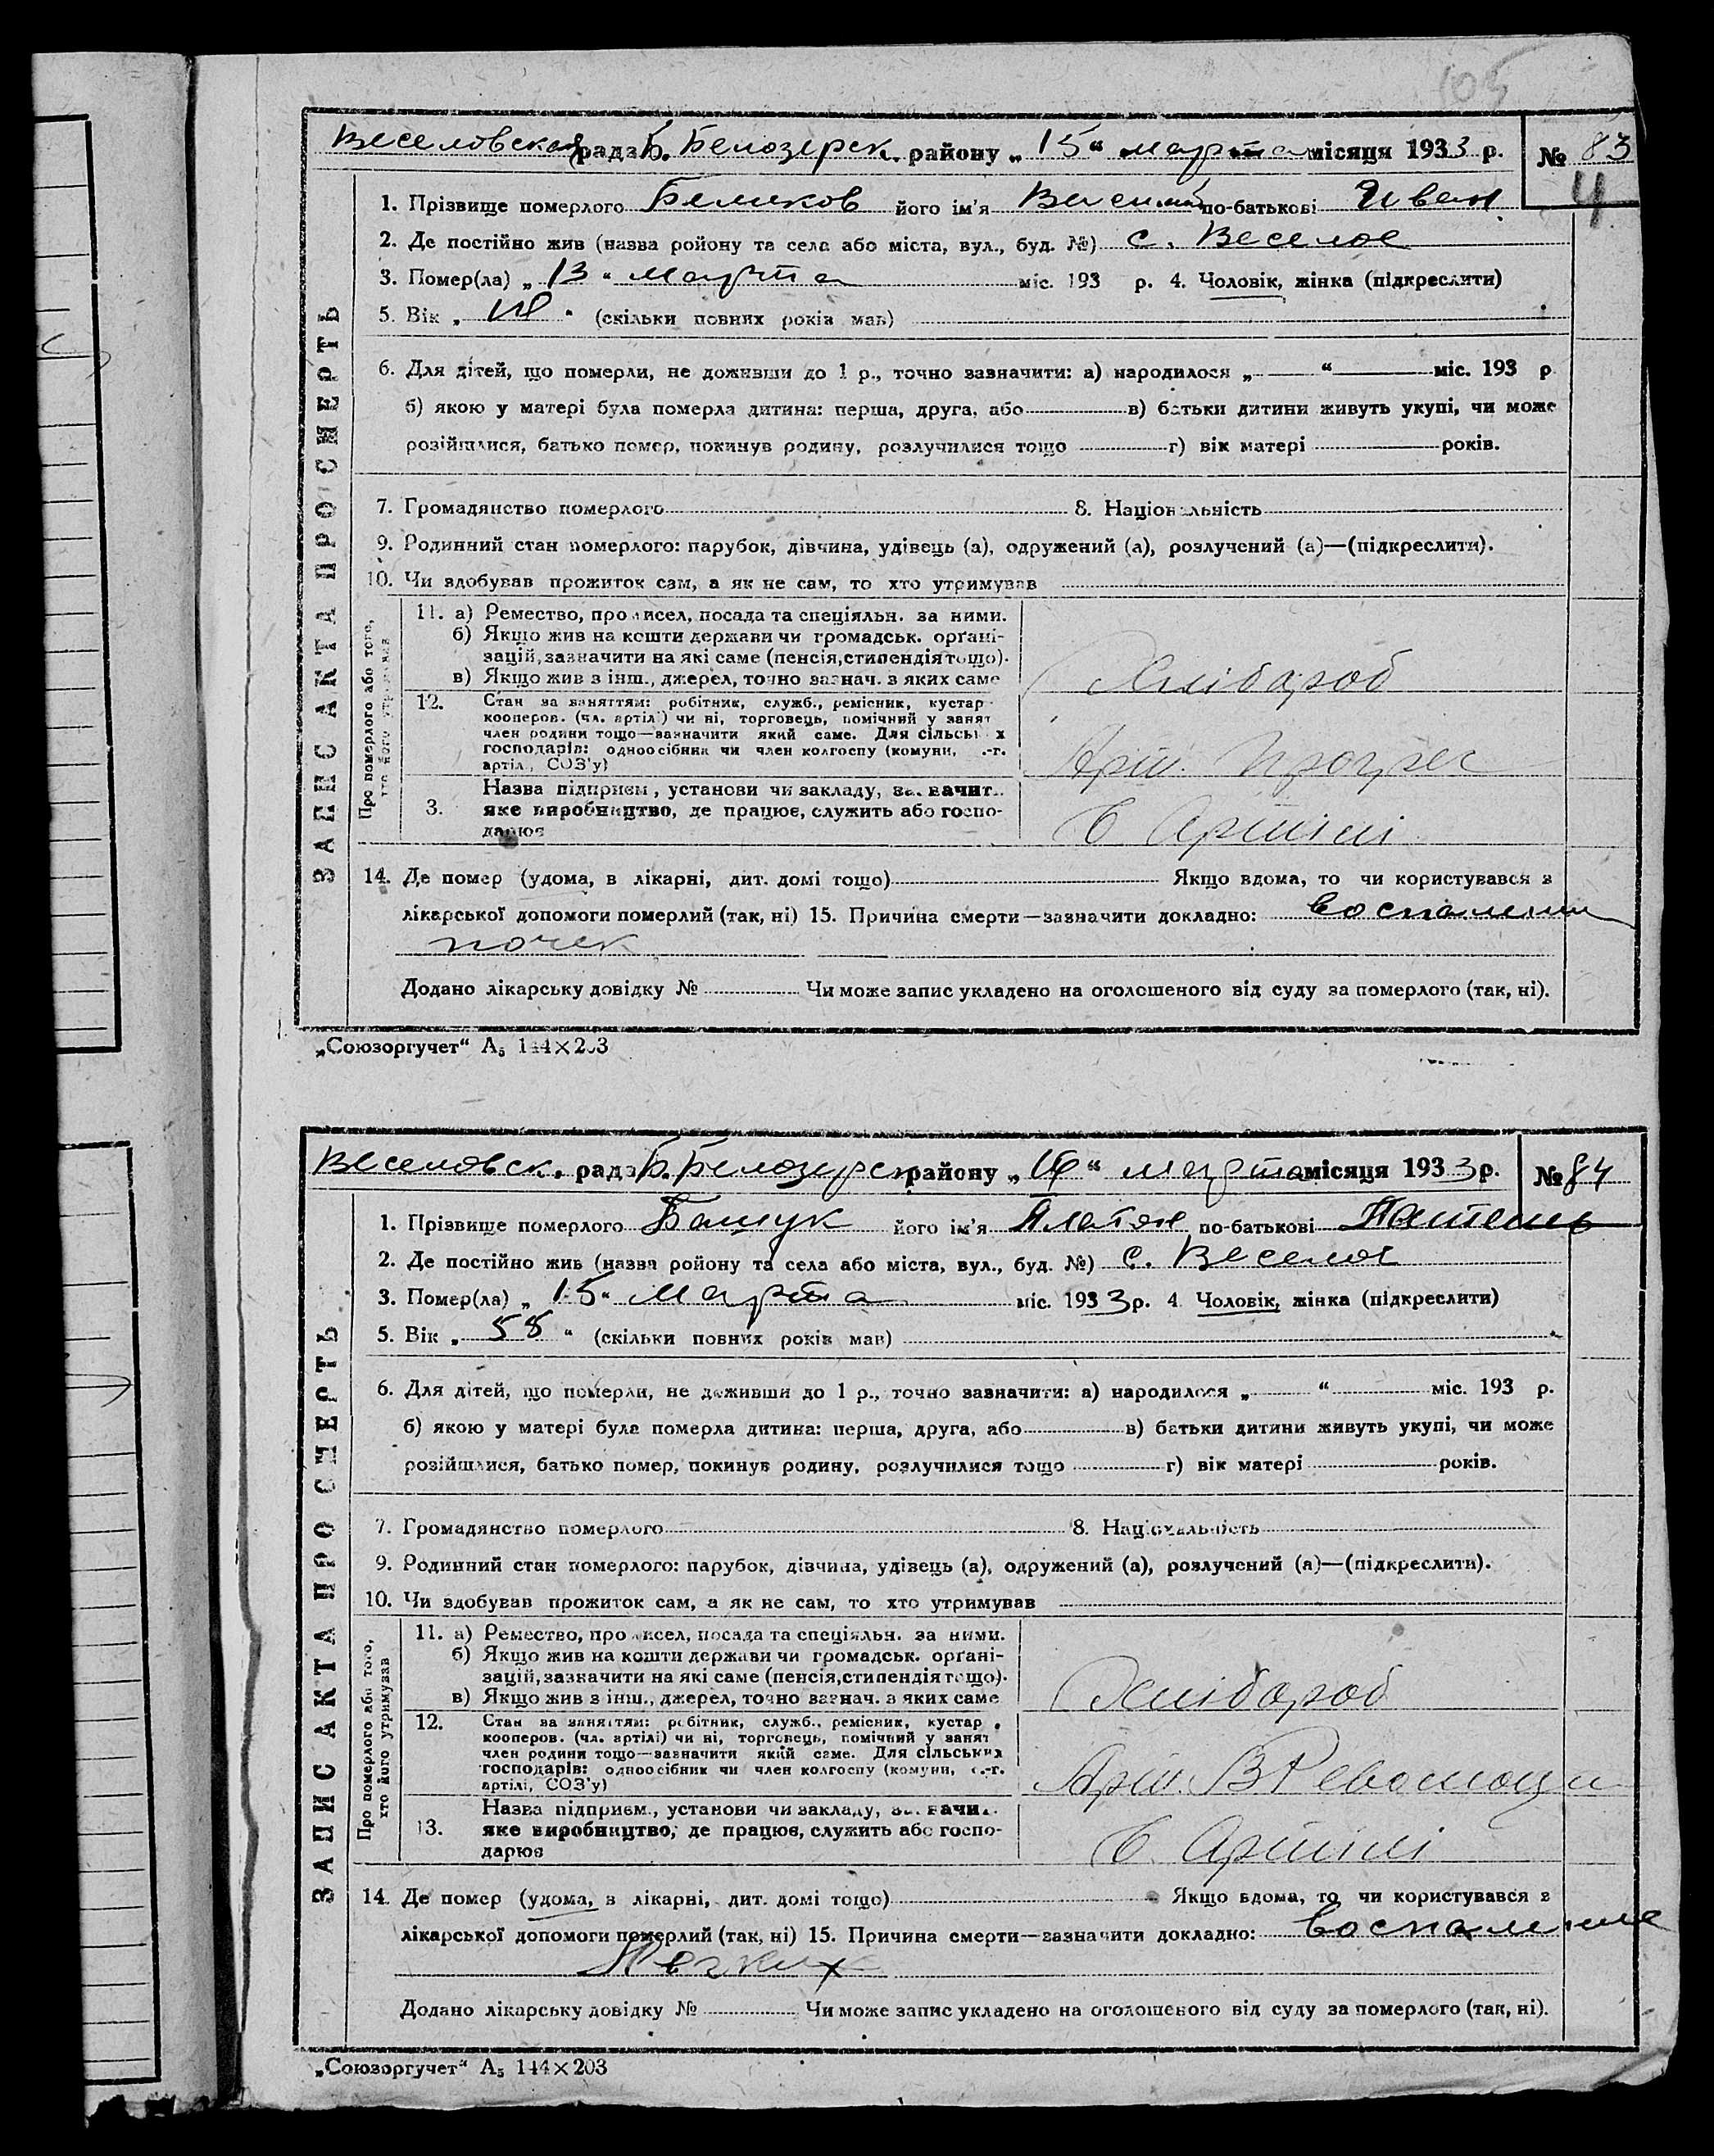 105
Веселовская рада Б. Белозерск. району „15“ марта місяця 1933 р. № 83
4
1. Прізвище померлого Беликов його ім'я Василий по-батькові Иван.
2. Де постійно жив (назва ройону та села або міста, вул., буд. №) с. Веселое
3. Помер(ла) „13“ Марта міс. 193 р. 4. Чоловік, жінка (підкреслити)
5. Вік „ “ (скільки повних років мав)
6. Для дітей, що померли, не доживши до 1 р., точно зазначити: а) народилося „ “ міс. 193 р
б) якою у матері була померла дитина: перша, друга, або в) батьки дитини живуть укупі, чи може
розійшлися, батько помер, покинув родину, розлучилися тощо г) вік матері років.
7. Громадянство померлого 8. Національність
9. Родинний стан померлого: парубок, дівчина, удівець (а), одружений (а), розлучений (а)—(підкреслити).
10. Чи здобував прожиток сам, а як не сам, то хто утримував
ЗАПИС АКТА ПРО СМЕРТЬ
Про померлого або того, хто його утримував
11. а) Ремество, промисел, посада та спеціяльн. за ними.
б) Якщо жив на кошти держави чи громадськ. орґані-
зацій, зазначити на які саме (пенсія, стипендія тощо).
в) Якщо жив з інш., джерел, точно зазнач. з яких саме
Хлібороб
12. Стан за заняттям: робітник, служб., ремісник, кустар
кооперов. (чл. артілі) чи ні, торговець, помічний у занят
член родини тощо—зазначити який саме. Для сільськ х
господарів: одноосібник чи член колгоспу (комуни, .-г.
артілі, СОЗ'у)
Арт. Прогрес
Назва підприєм., установи чи закладу, зазначит.
3. яке виробництво, де працює, служить або госпо-
дарює
В Артілі
14. Де помер (удома, в лікарні, дит. домі тощо) Якщо вдома, то чи користувався з
лікарської допомоги померлий (так, ні) 15. Причина смерти—зазначити докладно: воспаление
почек
Додано лікарську довідку № Чи може запис укладено на оголошеного від суду за померлого (так, ні).
„Союзоргучет“ А₅ 144×203
Веселовск. рада Б. Белозерск району „ “ марта місяця 1933 р. № 84
1. Прізвище померлого Бащук його ім'я Платон по-батькові
2. Де постійно жив (назва ройону та села або міста, вул., буд. №) с. Веселое
3. Помер(ла) „15“ Марта міс. 1933 р. 4 Чоловік, жінка (підкреслити)
5. Вік „58“ (скільки повних років мав)
6. Для дітей, що померли, не доживши до 1 р., точно зазначити: а) народилося „ “ міс. 193 р.
б) якою у матері була померла дитина: перша, друга, або в) батьки дитини живуть укупі, чи може
розійшлися, батько помер, покинув родину, розлучилися тощо г) вік матері років.
7. Громадянство померлого 8. Національність
9. Родинний стан померлого: парубок, дівчина, удівець (а), одружений (а), розлучений (а)—(підкреслити).
10. Чи здобував прожиток сам, а як не сам, то хто утримував
ЗАПИС АКТА ПРО СМЕРТЬ
Про померлого або того, хто його утримував
11. а) Ремество, промисел, посада та спеціяльн. за ними.
б) Якщо жив на кошти держави чи громадськ. орґані-
зацій, зазначити на які саме (пенсія, стипендія тощо).
в) Якщо жив з інш., джерел, точно зазнач. з яких саме
Хлібороб
12. Стан за заняттям: робітник, служб., ремісник, кустар
кооперов. (чл. артілі) чи ні, торговець, помічний у занят
член родини тощо—зазначити який саме. Для сільських
господарів: одноосібник чи член колгоспу (комуни, с.-г.
артілі, СОЗ'у)
Арт. В Революци
Назва підприєм., установи чи закладу, зазначит.
13. яке виробництво, де працює, служить або госпо-
дарює
В Артілі
14. Де помер (удома, в лікарні, дит. домі тощо) Якщо вдома, то чи користувався з
лікарської допомоги померлий (так, ні) 15. Причина смерти—зазначити докладно: воспаление
Легких
Додано лікарську довідку № Чи може запис укладено на оголошеного від суду за померлого (так, ні).
„Союзоргучет“ А₅ 144×203